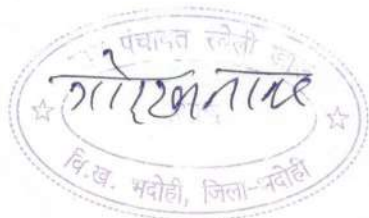 पंचायत
गोरखनाथ
वि.ख. भदोही, जिला-भदोही